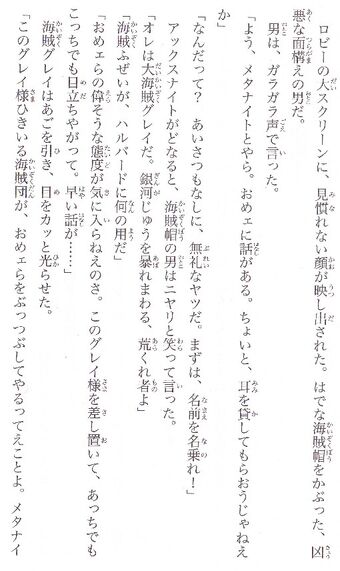 ロビーの大スクリーンに、見慣れない顔が映し出された。はでな海賊帽をかぶった、凶
悪な面構えの男だ。
男は、ガラガラ声で言った。
「よう、メタナイトとやら。おめェに話がある。ちょいと、耳を貸してもらおうじゃねえ
か」
「なんだって？　あいさつもなしに、無礼なヤツだ。まずは、名前を名乗れ！」
アックスナイトがどなると、海賊帽の男はニヤリと笑って言った。
「オレは大海賊グレイだ。銀河じゅうを暴れまわる、荒くれ者よ」
「海賊ふぜいが、ハルバードに何の用だ」
「おめェらの偉そうな態度が気に入らねえのさ。このグレイ様を差し置いて、あっちでも
こっちでも目立ちやがって。早い話が……」
海賊グレイはあごを引き、目をカッと光らせた。
「このグレイ様ひきいる海賊団が、おめェらをぶっつぶしてやるってえことよ。メタナイ